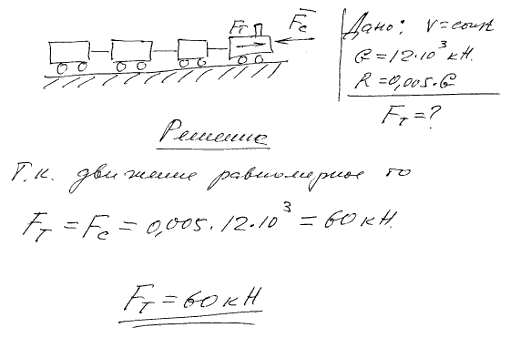 Fт
Fс
Дано: V=const
G=12·10³ кН.
R=0,005·G
Fт=?
Решение
Т.к. движение равномерное то
Fт = Fс = 0,005·12·10³ = 60 кН.
Fт = 60 кН